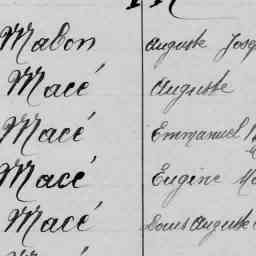 Mabon Auguste
Macé Auguste
Macé Emmanuel
Macé Eugène
Macé Louis Auguste